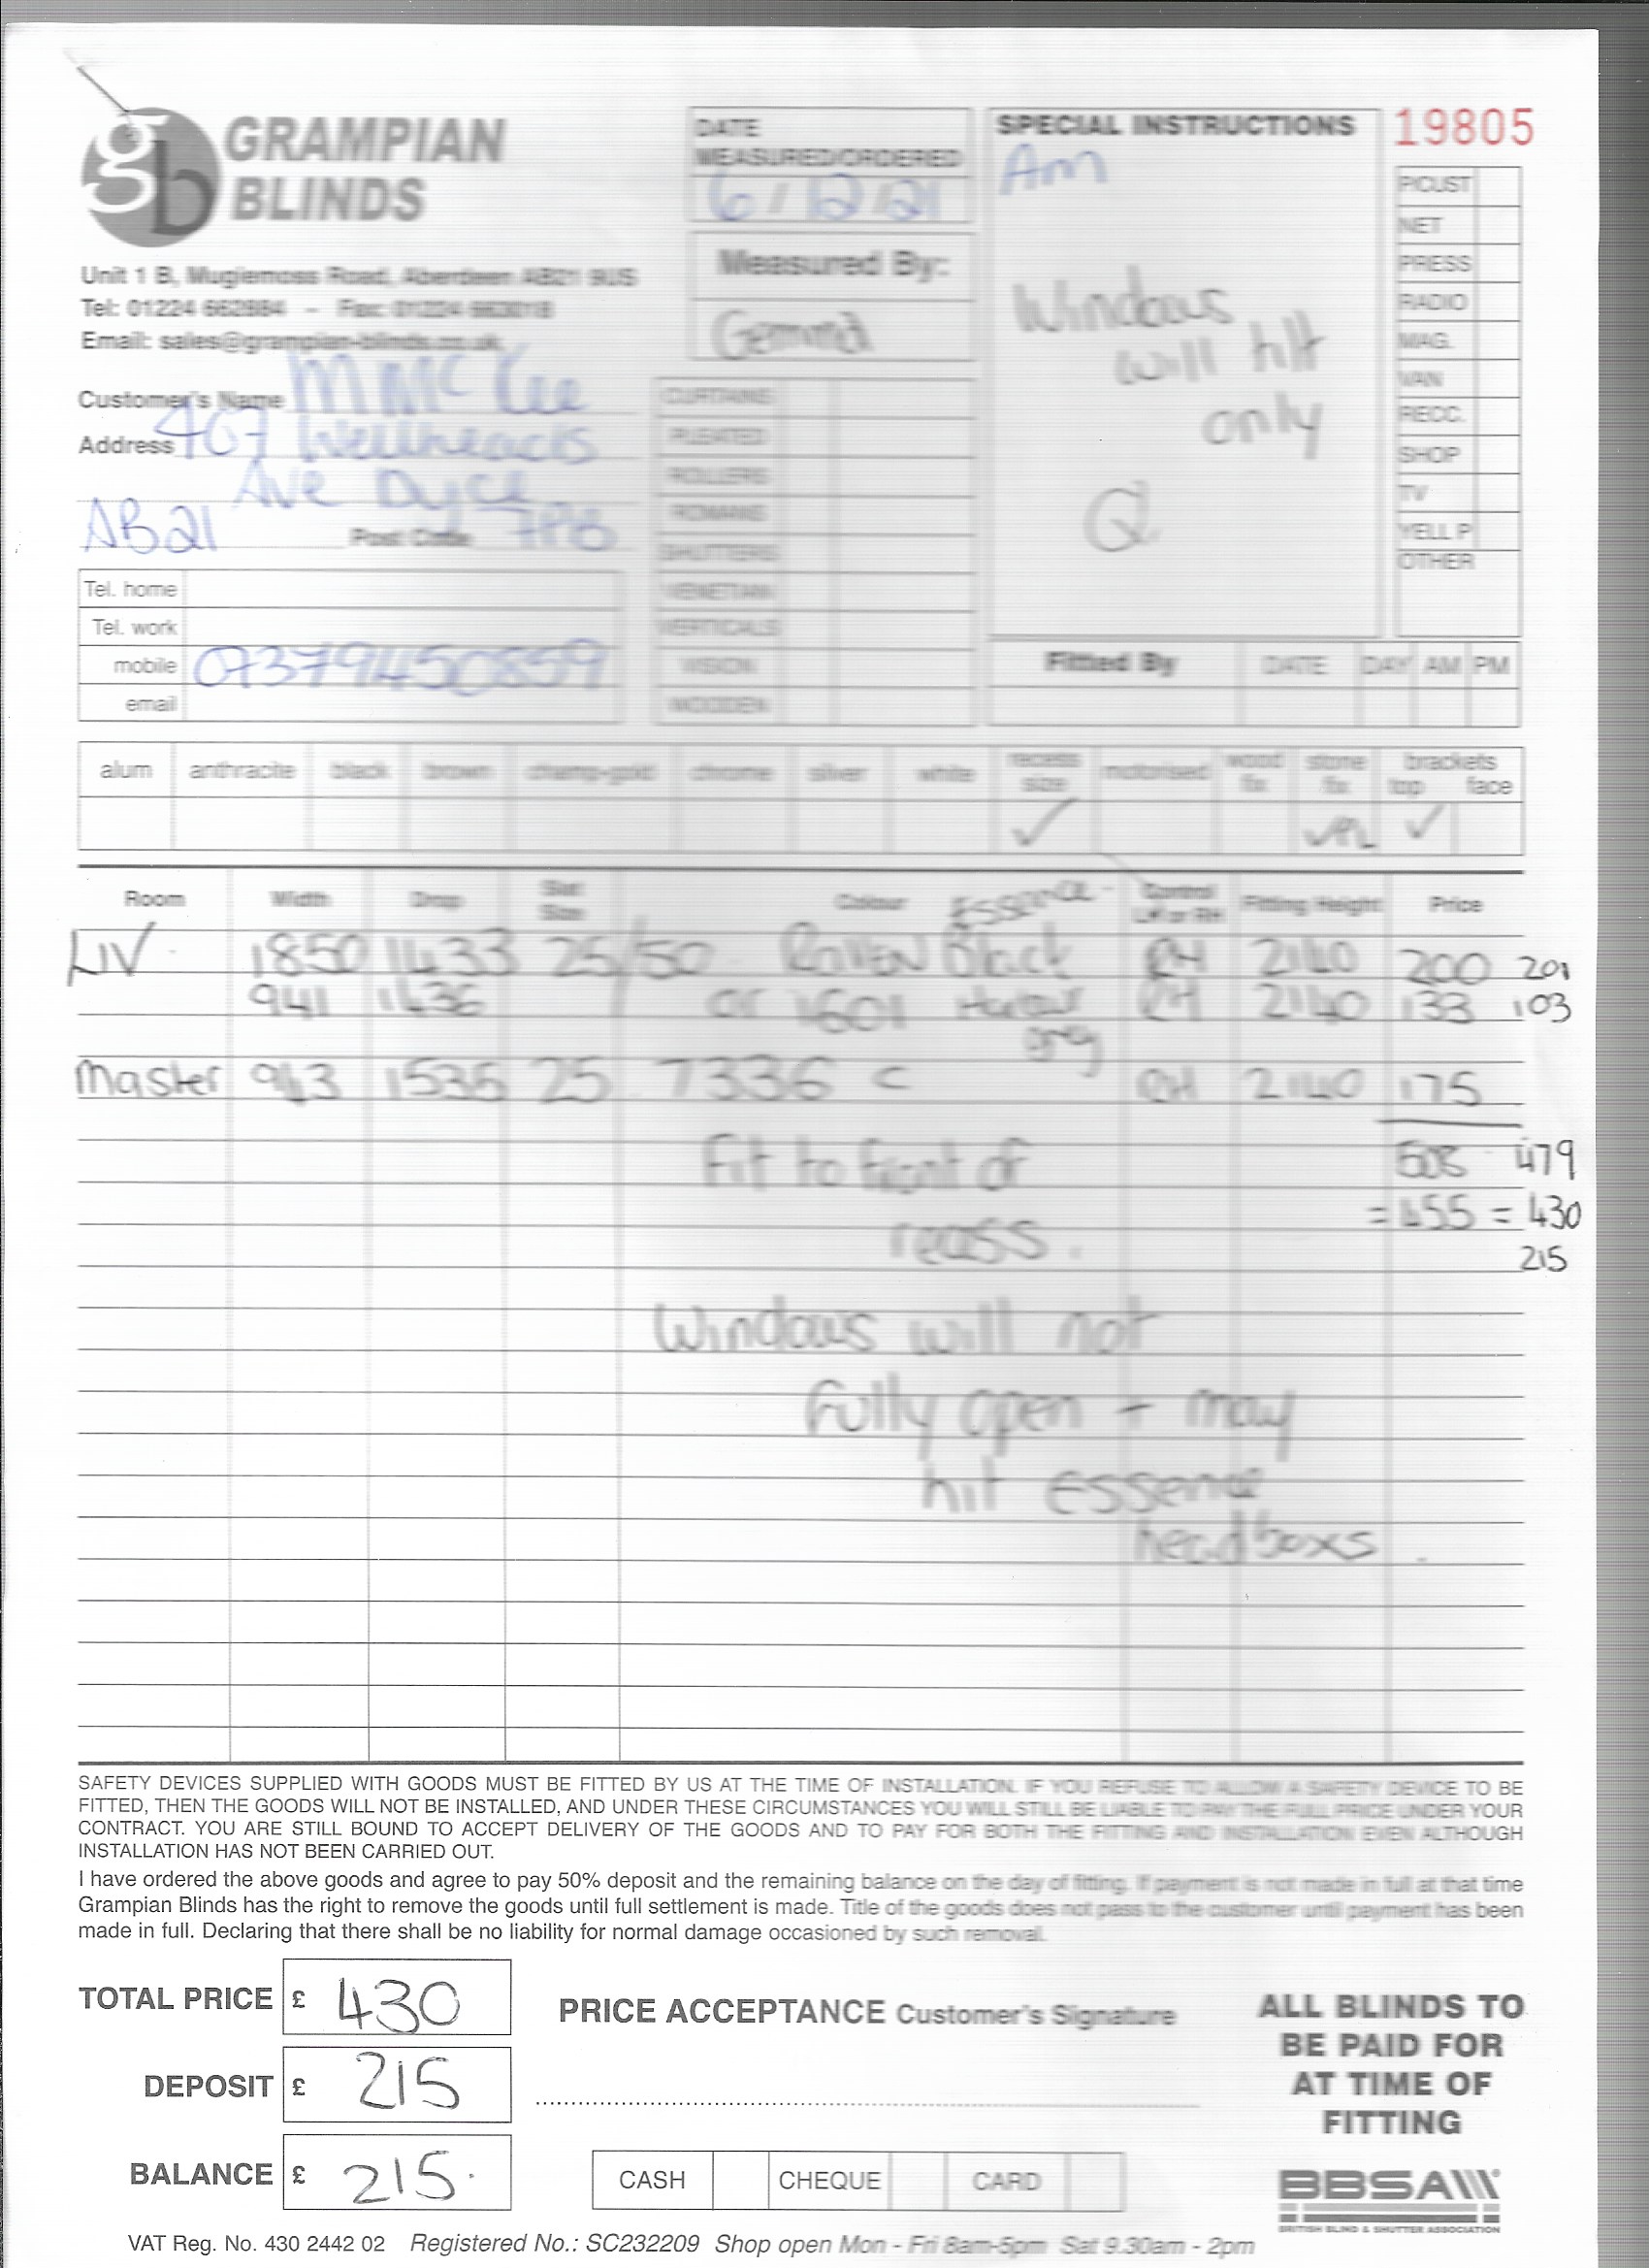 GRAMPIAN
BLINDS
gb
Unit 1 B, Mugiemoss Road, Aberdeen AB21 9US
Tel: 01224 662884 - Fax: 01224 663018
Email: sales@grampian-blinds.co.uk
DATE
MEASURED/ORDERED
6/12/21
Measured By:
Gemma
SPECIAL INSTRUCTIONS
Am
Windows
will tilt
only
Q
19805
P/CUST
NET
PRESS
RADIO
MAG.
VAN
RECC.
SHOP
TV
YELL P
OTHER
Customer's Name M Mc Kee
Address 407 Wellheads
Ave Dyce
AB21 Post Code 7PB
Tel. home
Tel. work
mobile 07379450859
email
CURTAINS
PLEATED
ROLLERS
ROMANS
SHUTTERS
VENETIAN
VERTICALS
VISION
WOODEN
Fitted By DATE DAY AM PM
alum anthracite black brown champ-gold chrome silver white recess size motorised wood fix stone fix brackets top face
✓ ✓ ✓
Room Width Drop Slat Size Colour Essence - Control LH or RH Fitting Height Price
LIV 1850 1433 25/50 Raven Black RH 2140 200 201
941 1436 or 1601 Harbour RH 2140 133 103
grey
Master 943 1535 25 7336 C RH 2140 175
Fit to front of 508 479
= 455 = 430
reass. 215
Windows will not
fully open + may
hit Essence
head boxs.
SAFETY DEVICES SUPPLIED WITH GOODS MUST BE FITTED BY US AT THE TIME OF INSTALLATION. IF YOU REFUSE TO ALLOW A SAFETY DEVICE TO BE
FITTED, THEN THE GOODS WILL NOT BE INSTALLED, AND UNDER THESE CIRCUMSTANCES YOU WILL STILL BE LIABLE TO PAY THE FULL PRICE UNDER YOUR
CONTRACT. YOU ARE STILL BOUND TO ACCEPT DELIVERY OF THE GOODS AND TO PAY FOR BOTH THE FITTING AND INSTALLATION EVEN ALTHOUGH
INSTALLATION HAS NOT BEEN CARRIED OUT.
I have ordered the above goods and agree to pay 50% deposit and the remaining balance on the day of fitting. If payment is not made in full at that time
Grampian Blinds has the right to remove the goods until full settlement is made. Title of the goods does not pass to the customer until payment has been
made in full. Declaring that there shall be no liability for normal damage occasioned by such removal.
TOTAL PRICE £ 430
PRICE ACCEPTANCE Customer's Signature
DEPOSIT £ 215
BALANCE £ 215.
CASH CHEQUE CARD
ALL BLINDS TO
BE PAID FOR
AT TIME OF
FITTING
BBSA
BRITISH BLIND & SHUTTER ASSOCIATION
VAT Reg. No. 430 2442 02 Registered No.: SC232209 Shop open Mon - Fri 8am-5pm Sat 9.30am - 2pm